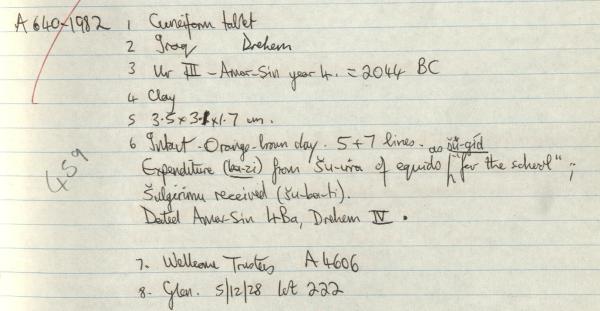 A 640-1982 1 Cuneiform tablet
2 Iraq Drehem
3 Ur III - Amar-Sin year 4. = 2044 BC
4 Clay
5 3.5 x 3.1 x 1.7 cm.
6 Intact - Orange-brown clay. 5 + 7 lines. as šu-gíd
Expenditure (ba-zi) from Šu-urra of equids "for the school";
Šulgirimu received (šu-ba-ti).
Dated Amar-Sin 4Ba, Drehem IV.
459
7. Wellcome Trustees A 4606
8. Glen. 5/12/28 lot 222